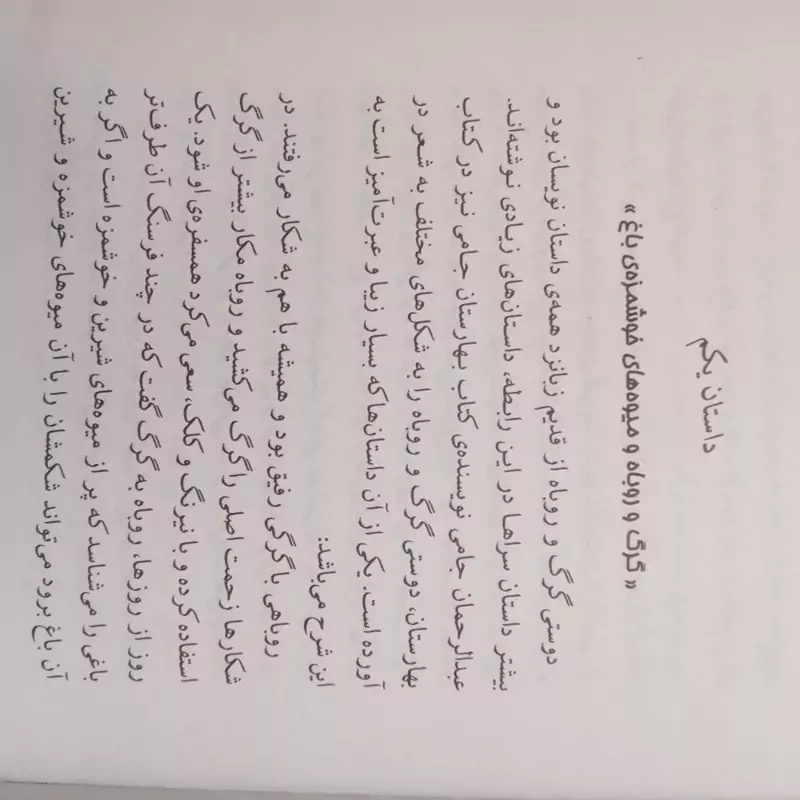 داستان یکم
« گرگ و روباه و میوه‌های خوشمزه‌ی باغ »
دوستی گرگ و روباه از قدیم زبانزد همه‌ی داستان نویسان بود و
بیشتر داستان سراها در این رابطه، داستان‌های زیادی نوشته‌اند.
عبدالرحمان جامی نویسنده‌ی کتاب بهارستان جامی نیز در کتاب
بهارستان، دوستی گرگ و روباه را به شکل‌های مختلف به شعر در
آورده است. یکی از آن داستان‌ها که بسیار زیبا و عبرت‌آمیز است به
این شرح می‌باشد:
روباهی با گرگی رفیق بود و همیشه با هم به شکار می‌رفتند. در
شکارها زحمت اصلی را گرگ می‌کشید و روباه مکار بیشتر از گرگ
استفاده کرده و با نیرنگ و کلک، سعی می‌کرد همسفره‌ی او شود. یک
روز از روزها، روباه به گرگ گفت که در چند فرسنگ آن طرف‌تر
باغی را می‌شناسد که پر از میوه‌های شیرین و خوشمزه است و اگر به
آن باغ برود می‌تواند شکمشان را با آن میوه‌های خوشمزه و شیرین